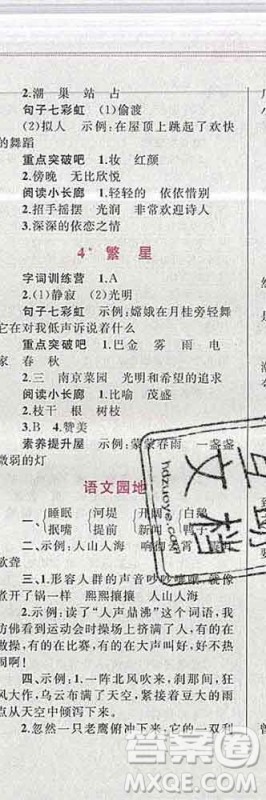 2.潮 巢 站 占
句子七彩虹 (1)偷渡
(2)拟人 示例:在屋顶上跳起了欢快
的舞蹈
重点突破吧 1.妆 红颜
2.傍晚 无比欣悦
阅读小长廊 1.轻轻的 依依惜别
2.招手摇摆 光润 非常欢迎诗人
3.深深的依恋之情
4* 繁 星
字词训练营 1.A
2.(1)静寂 (2)光明
句子七彩虹 示例:嫦娥在月桂旁轻舞
它在对我低声诉说着什么
重点突破吧 1.巴金 雾 雨 电
家 春 秋
2.三 南京菜园 光明和希望的追求
阅读小长廊 1.比喻 星
2.枝干 根 树枝
3.B 4.赞美
素养提升屋 示例:蒙蒙春雨 一盏盏
微弱的灯
语文园地
一、睡眠 河堤 开朗 白鹅
抿嘴 提前 新闻 鸭子
二、示例:人山人海 响彻云霄
欲聋
三、1.形容人群的声音吵吵嚷嚷,就像
开了锅一样 熙熙攘攘 人山人海
2.示例:读了“人声鼎沸”这个词语,我
仿佛看到运动会时操场上挤满了人,有的在
做操,有的在比赛,有的大声叫好,好不
热闹!
四、示例:1.一阵北风吹来,刹那间,狂
风大作,乌云布满了天空,紧接着豆大的雨
点从天空中倾泻下来。
2.忽然一只老鹰俯冲下来:它的一双利
hdzuoye.com
文档
答案
MXQE.COM